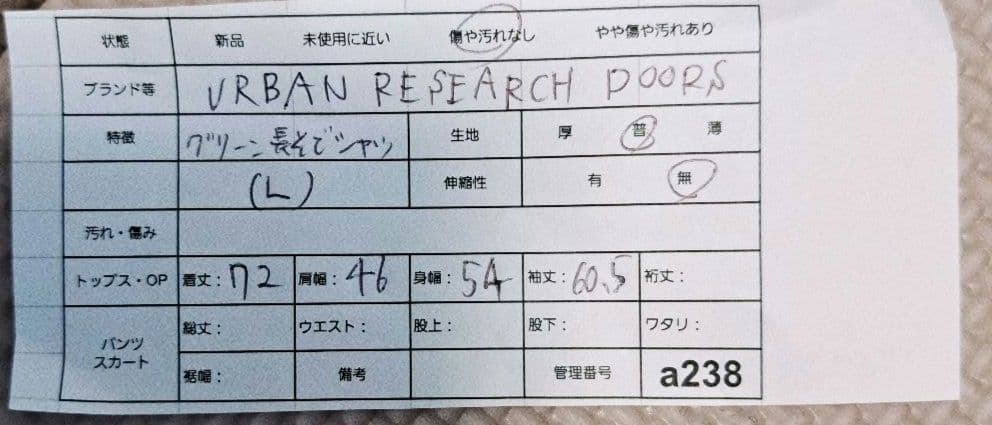 状態 新品 未使用に近い 傷や汚れなし やや傷や汚れあり
ブランド等 URBAN RESEARCH DOORS
特徴 グリーン長そでシャツ 生地 厚 普 薄
(L) 伸縮性 有 無
汚れ・傷み
トップス・OP 着丈：72 肩幅：46 身幅：54 袖丈：60.5 裄丈：
パンツ スカート 総丈： ウエスト： 股上： 股下： ワタリ：
裾幅： 備考 管理番号 a238